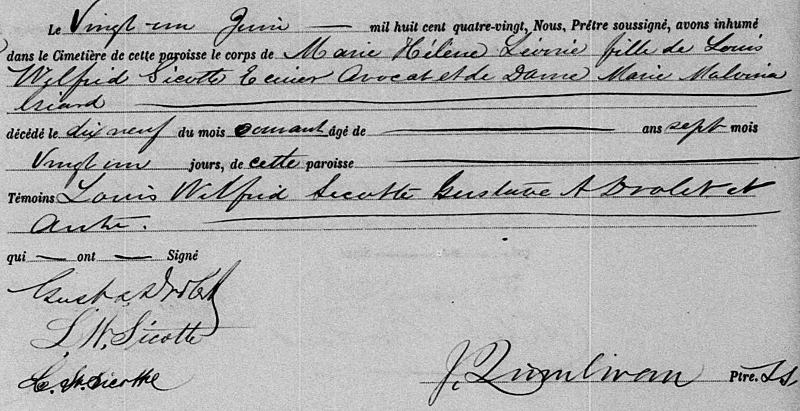 Le Vingt-un Juin — mil huit cent quatre-vingt, Nous, Prêtre soussigné, avons inhumé
dans le Cimetière de cette paroisse le corps de Marie Hélène Léonie fille de Louis
Wilfrid Sicotte Ecuier Avocat et de Dame Marie Malvina
décédé le dix neuf du mois courant âgé de — ans sept mois
Vingt un jours, de cette paroisse
Témoins Louis Wilfrid Sicotte Gustave A Drolet et
Autre.
qui — ont — Signé
Gust A Drolet
L. W. Sicotte
Sicotte
J. Quinlivan Ptre.